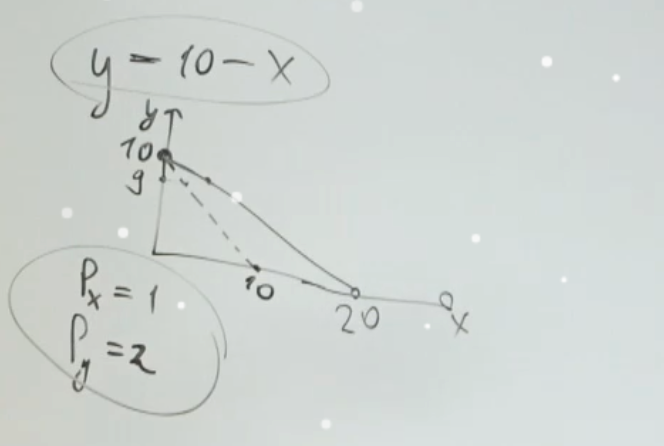 y = 10 - x
y
10
9
10
20
x
Px = 1
Py = 2